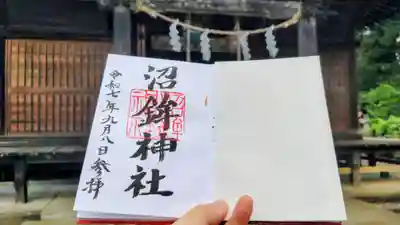 沼鉾神社
令和七年九月八日参拝